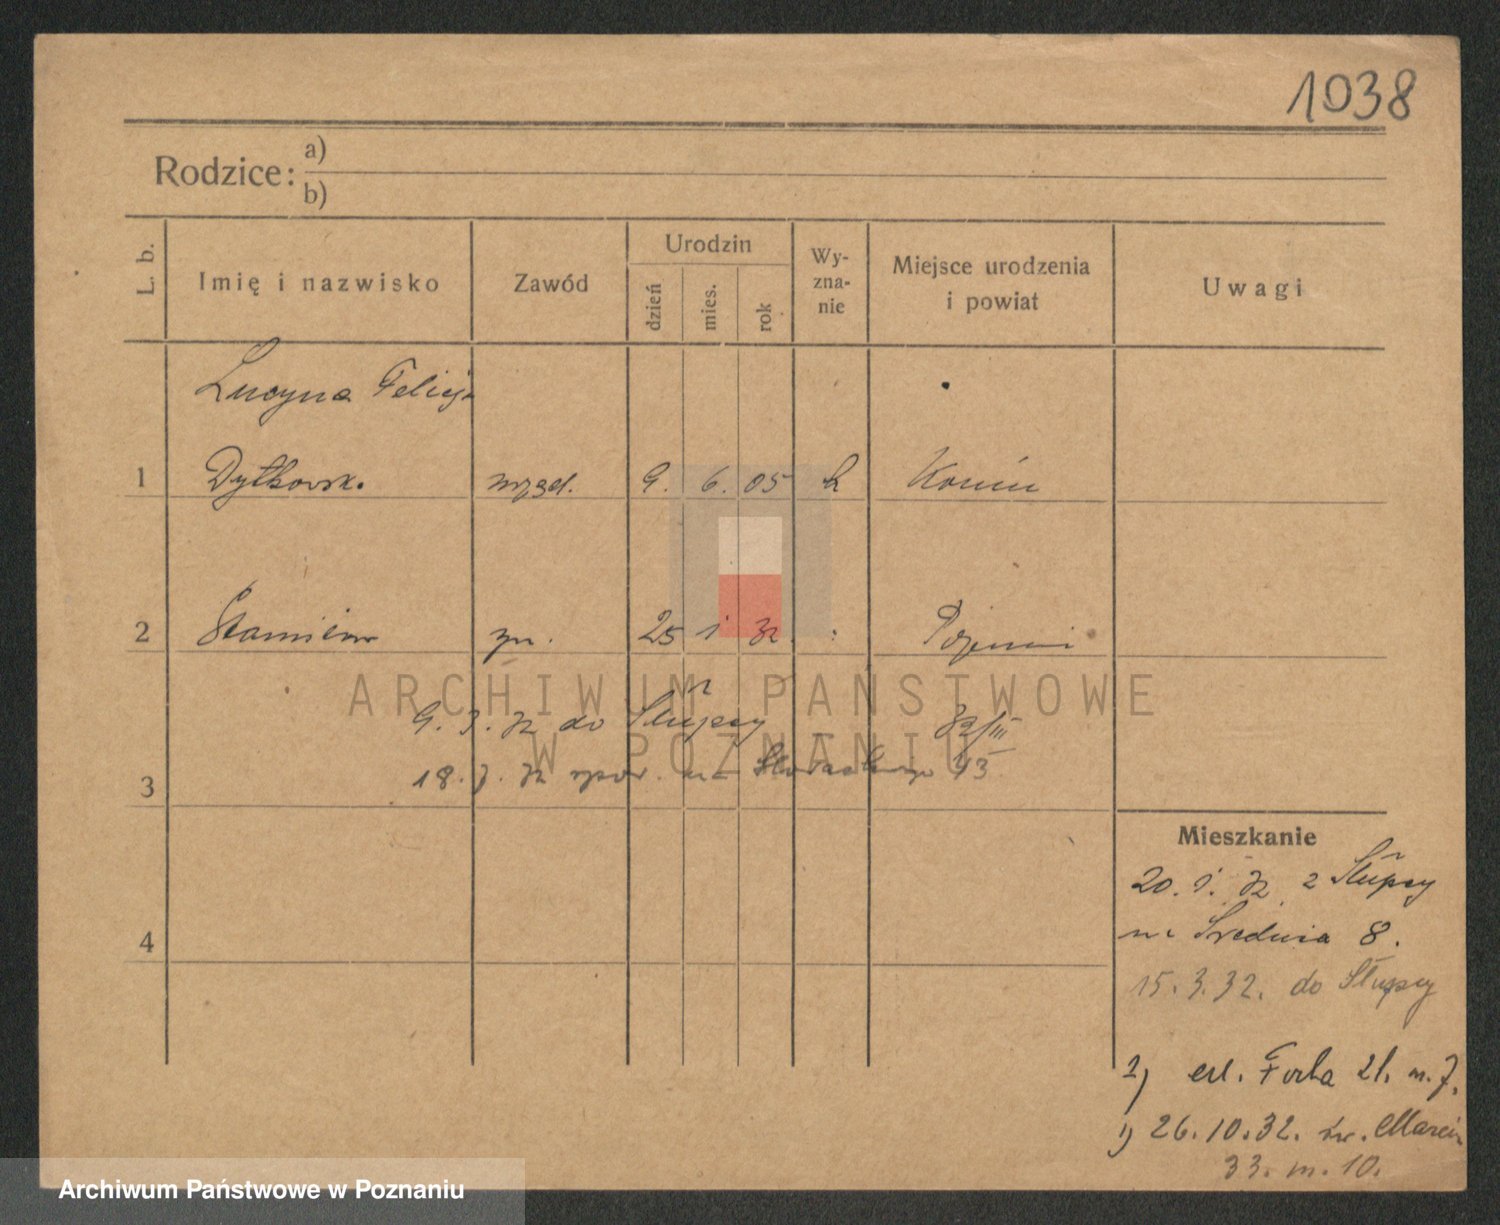 1038
Rodzice: a)
b)
L. b.
Imię i nazwisko
Zawód
Urodzin
dzień
mies.
rok
Wy-
zna-
nie
Miejsce urodzenia
i powiat
Uwagi
Lucyna Felicja
1 Dytkowsk. urzęd. 9. 6. 05 k Konin
2 25 1 32
9. 3. 32 do Słupcy
3 18. 32
4
Mieszkanie
20. 1. 32 z Słupcy
na Średnia 8.
15. 3. 32. do Słupcy
2) erl. 21. m. 7.
1) 26. 10. 32. św. Marcin
33. m. 10.
ARCHIWUM PAŃSTWOWE
W POZNANIU
Archiwum Państwowe w Poznaniu